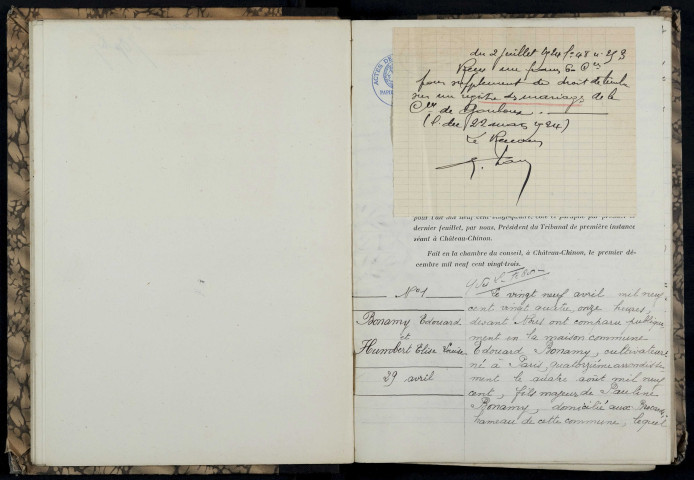 du 2 juillet 1924 f° 48 n° 253
Reçu un franc
pour supplément de droit de timbre
sur un registre des mariages de la
Cne de Gouloux.
(L. du 22 mars 1924)
Le Receveur
ACTES DE
pour l'an mil neuf cent vingt-quatre, coté et paraphé par premier et
dernier feuillet, par nous, Président du Tribunal de première instance
séant à Château-Chinon.
Fait en la chambre du conseil, à Château-Chinon, le premier dé-
cembre mil neuf cent vingt-trois.
N° 1
Bonamy Edouard
et
Humbert Elise Louise
29 avril
Le vingt neuf avril mil neuf
cent vingt quatre, onze heures,
devant Nous ont comparu publique
ment en la maison commune
Edouard Bonamy, cultivateur
né à Paris, quatorzième arrondisse
ment le quatre août mil neuf
cent, fils majeur de Pauline
Bonamy, domicilié aux
hameau de cette commune, lequel